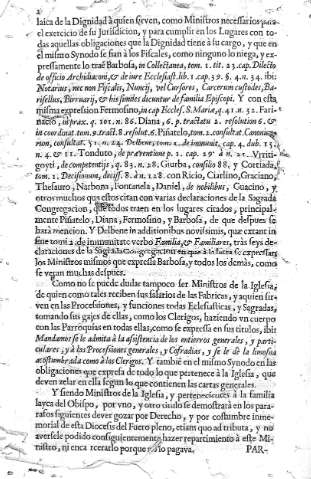 laica de la Dignidad à quien sirven, como Ministros necessarios para
el exercicio de su Jurisdicion, y para cumplir en los Lugares con to-
das aquellas obligaciones que la Dignidad tiene à su cargo, y que en
el mismo Synodo se fian à los Fiscales, como ninguno lo niega, y ex-
pressamente lo traè Barbosa, in Collectanea, tom. 1. tit. 23. cap. Dilecto
de officio Archidiaconi, & de iure Ecclesiast. lib. 1. cap. 39. §. 4. n. 34. ibi:
Notarius, nec non Fiscalis, Nuncij, vel Cursores, Carcerum custodes, Ba-
risellus, Berruarij, & his similes dicuntur de familia Episcopi. Y con esta
misma expression Fermosino, in cap Eccles. S. Mariæ, q. 41 n. 32. Fari-
nacio, in prax. q. 101. n. 86. Diana, 6. p. tractatu 2. resolution 6. &
in coordinat. tom. 9. tract. 8. resolut. 6. Piñatelo, tom. 2. consultat. Canonica-
rum, consultat. 51. n. 24. Delbene, tom. 1. de immunit. cap. 4. dub. 13.
n. 4. & 11. Tonduto, de præventione p. 2. cap. 29. à n. 21. Yrriti-
goyti, de competentijs, q. 83. n. 28. Giurba, consilio 88, y Cortiada,
tom. 2. Decisionum, decis. 8. à n. 128. con Ricio, Ciarlino, Graciano,
Thesauro, Narbona, Fontanela, Daniel, de nobilibus, Guacino, y
otros muchos que estos citan con varias declaraciones de la Sagrada
Congregacion, que todos traen en los lugares citados, principal-
mente Piñatelo, Diana, Fermosino, y Barbosa, de que despues se
harà mencion. Y Delbene in additionibus novissimis, que extant in
fine tomi 2. de immunitate verbo Familia, & Familiares, tràs seys de-
claraciones de la Sagrada Congregacion en que à la letra se expressan
los Ministros mismos que expressa Barbosa, y todos los demàs, como
se vean muchas despues.
Como no se puede dudar tampoco ser Ministros de la Iglesia,
de quien como tales reciben sus salarios de las Fabricas, y à quien sir-
ven en las Processiones, y funciones todas Eclesiasticas, y Sagradas,
tomando sus gajes de ellas, como los Clerigos, haziendo vn cuerpo
con las Parroquias en todas ellas, como se expressa en sus titulos, ibi:
Mandamos se le admita à la asistencia de los entierros generales, y parti-
culares, y à las Processiones generales, y Cofradias, y se le dè la limosna
acostumbrada como à los Clerigos. Y tambiẽ en el mismo Synodo en las
obligaciones que expressa de todo lo que pertenece à la Iglesia, que
deven zelar en ella segun lo que contienen las cartas generales.
Y siendo Ministros de la Iglesia, y pertenecientes à la familia
layca del Obispo, por vno, y otro titulo se demostrarà en los para-
rafos siguientes dever gozar por Derecho, y por costumbre inme-
morial de esta Diocesis del Fuero pleno, etiam quo ad tributa, y no
averseles podido consiguientemente hazer repartimiento à este Mi-
nistro, ni encarcerarlo porque no lo pagava.
PAR-